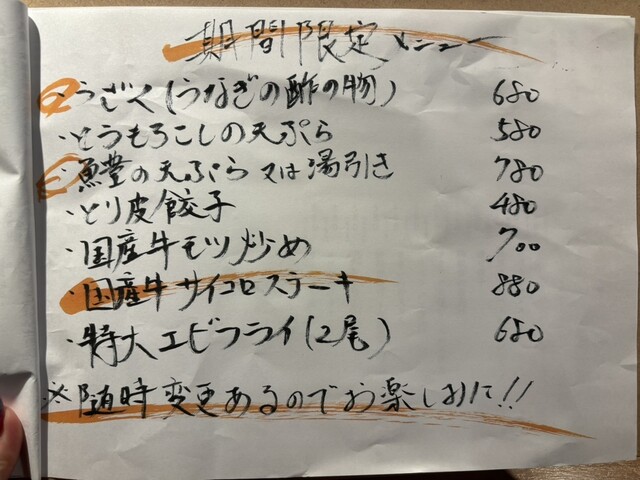 期間限定メニュー
・うざく(うなぎの酢の物) 680
・とうもろこしの天ぷら 580
・鱧の天ぷら又は湯引き 780
・とり皮餃子 480
・国産牛モツ炒め 700
・国産牛サイコロステーキ 880
・特大エビフライ(2尾) 680
※随時変更あるのでお楽しみに!!